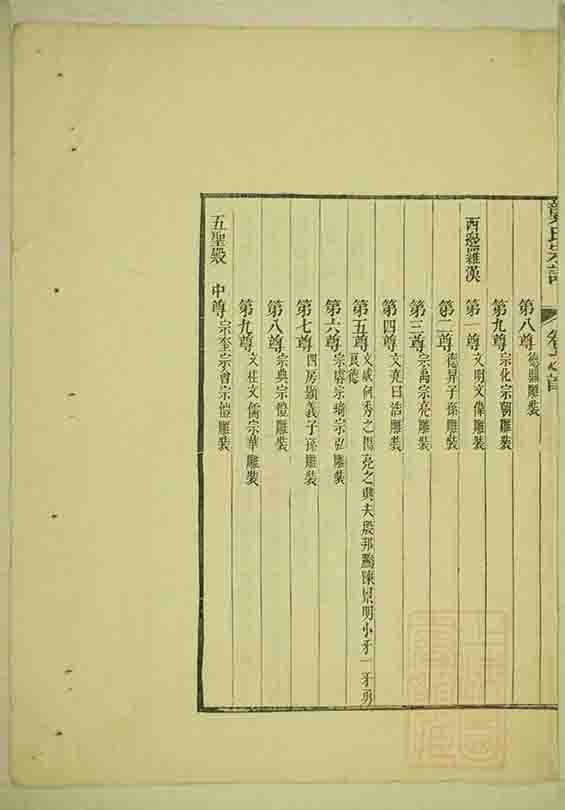 第八尊德顯雕裝
第九尊宗化宗朝雕裝
西邊羅漢
第一尊文明文偉雕裝
第二尊德昇子孫雕裝
第三尊宗禹宗亮雕裝
第四尊文堯曰浩雕裝
第五尊文威何秀之楊亮之與夫殷邦鵬陳景明小才一才勇
良德
第六尊宗虞宗琦宗弘雕裝
第七尊四房顯義子孫雕裝
第八尊宗典宗愷雕裝
第九尊文柱文儒宗華雕裝
五聖殿 中尊宗奎宗曾宗愷雕裝